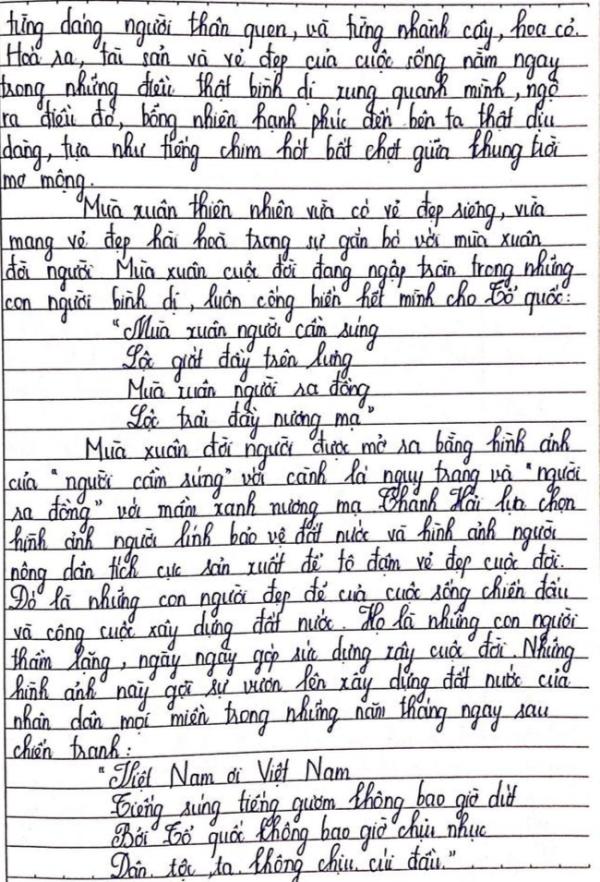 từng dáng người thân quen, và từng nhành cây, hoa cỏ.
Hoá ra, tài sản và vẻ đẹp của cuộc sống nằm ngay
trong những điều thật bình dị xung quanh mình, ngộ
ra điều đó, bỗng nhiên hạnh phúc đến bên ta thật dịu
dàng, tựa như tiếng chim hót bất chợt giữa khung trời
mơ mộng.
Mùa xuân thiên nhiên vừa có vẻ đẹp riêng, vừa
mang vẻ đẹp hài hoà trong sự gắn bó với mùa xuân
đời người Mùa xuân cuộc đời đang ngập tràn trong những
con người bình dị, luôn cống hiến hết mình cho Tổ quốc:
"Mùa xuân người cầm súng
Lộc giắt đầy trên lưng
Mùa xuân người ra đồng
Lộc trải đầy nương mạ"
Mùa xuân đời người được mở ra bằng hình ảnh
của "người cầm súng" với cành lá nguỵ trang và "người
ra đồng" với mầm xanh nương mạ Thanh Hải lựa chọn
hình ảnh người lính bảo vệ đất nước và hình ảnh người
nông dân tích cực sản xuất để tô đậm vẻ đẹp cuộc đời.
Đó là những con người đẹp đẽ của cuộc sống chiến đấu
và công cuộc xây dựng đất nước. Họ là những con người
thầm lặng, ngày ngày góp sức dựng xây cuộc đời. Những
hình ảnh này gợi sự vươn lên xây dựng đất nước của
nhân dân mọi miền trong những năm tháng ngay sau
chiến tranh:
"Việt Nam ơi Việt Nam
Tiếng súng tiếng gươm không bao giờ dứt
Bởi Tổ quốc không bao giờ chịu nhục
Dân tộc ta không chịu cúi đầu."